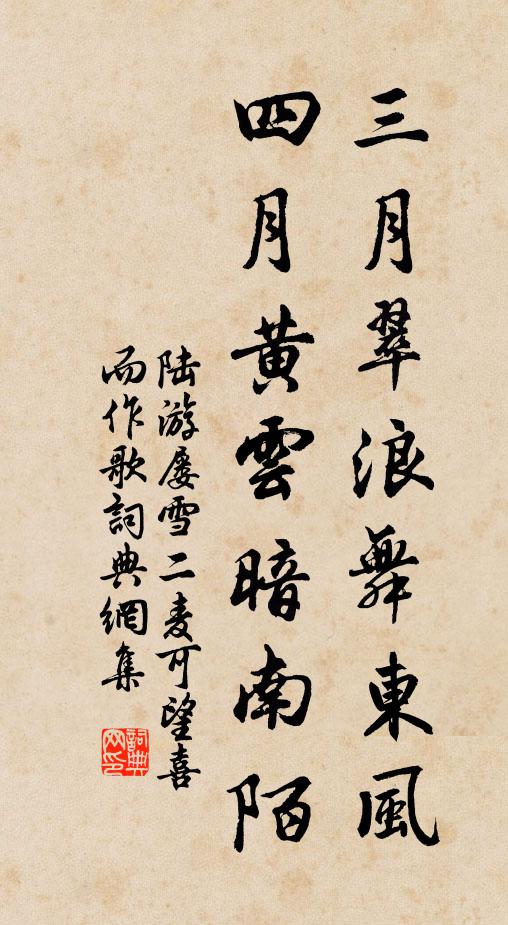 三月翠浪舞東風
四月黃雲暗南陌
陆游屡雪二麦可望喜
而作歌詞典網集
詞典网印